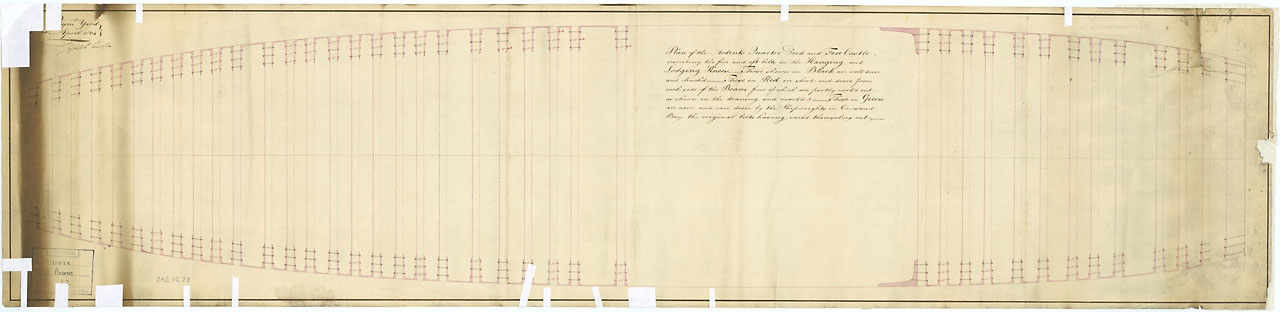 Yard
April
Plan of the Ardent's Quarter Deck and Fore Castle,
inserting the fore and aft bolts in the Hanging and
Lodging Knees. Those shewn in Black are well drove
and clenched. Those in Red are short and drove from
each side of the Beam four of which are partly work'd out
as shewn in the drawing and mark'd Those in Green
are new and were drove by the Shipwrights in Causand
Bay the original bolts having work'd themselves out
ARDENT